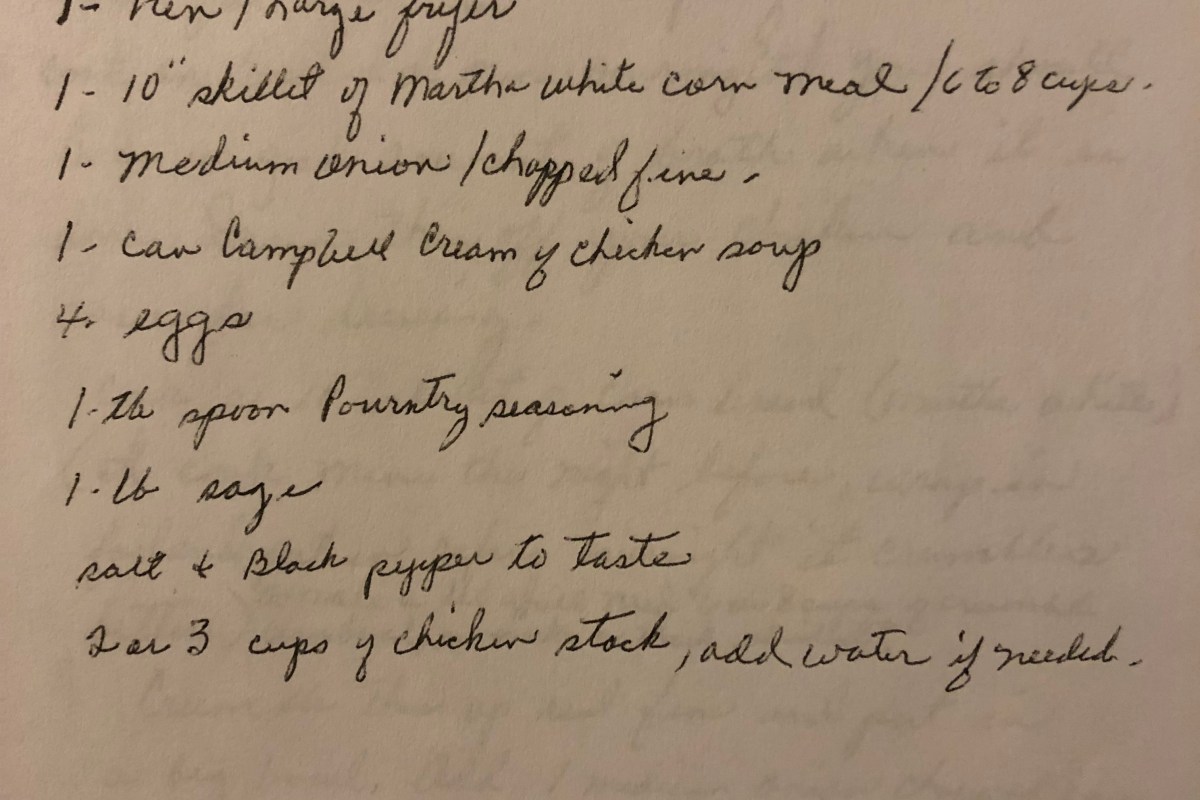 1- Hen / Large fryer
1- 10" skillet of Martha White corn meal /6 to 8 cups.
1- Medium onion /chopped fine.
1- can Campbell Cream of chicken soup
4. eggs
1-tb spoon Pourntry seasoning
1-tb sage
salt & Black pepper to taste
2 or 3 cups of chicken stock, add water if needed.